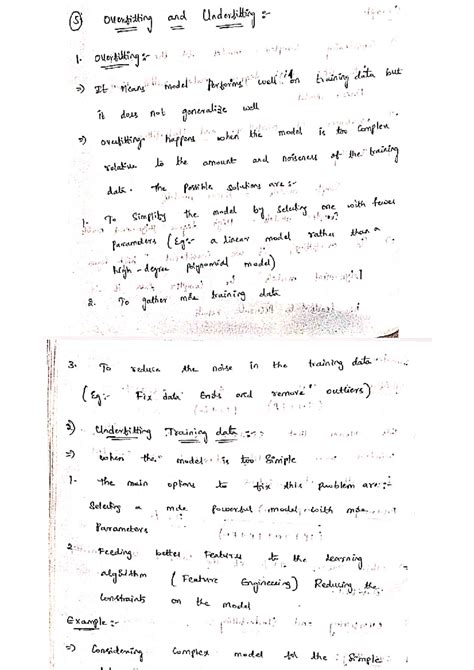 ⑤ Overfitting and Underfitting :-
1. Overfitting :-
⇒ It means model performs well on training data but
it does not generalize well
⇒ overfitting happens when the model is too complex
relative to the amount and noiseness of the training
data. The possible solutions are :-
1. To Simplify the model by selecting one with fewer
parameters (Eg:- a linear model rather than a
high-degree polynomial model)
2. To gather more training data
3. To reduce the noise in the training data
(Eg:- Fix data and remove outliers)
2) Underfitting Training data :-
⇒ when the model is too Simple
1. The main options to fix this problem are :-
Selecting a more powerful model, with more
Parameters
2. Feeding better Features to the learning
algorithm (Feature Engineering) Reducing the
Constraints on the model
Example :-
⇒ Considering Complex model for the Simple